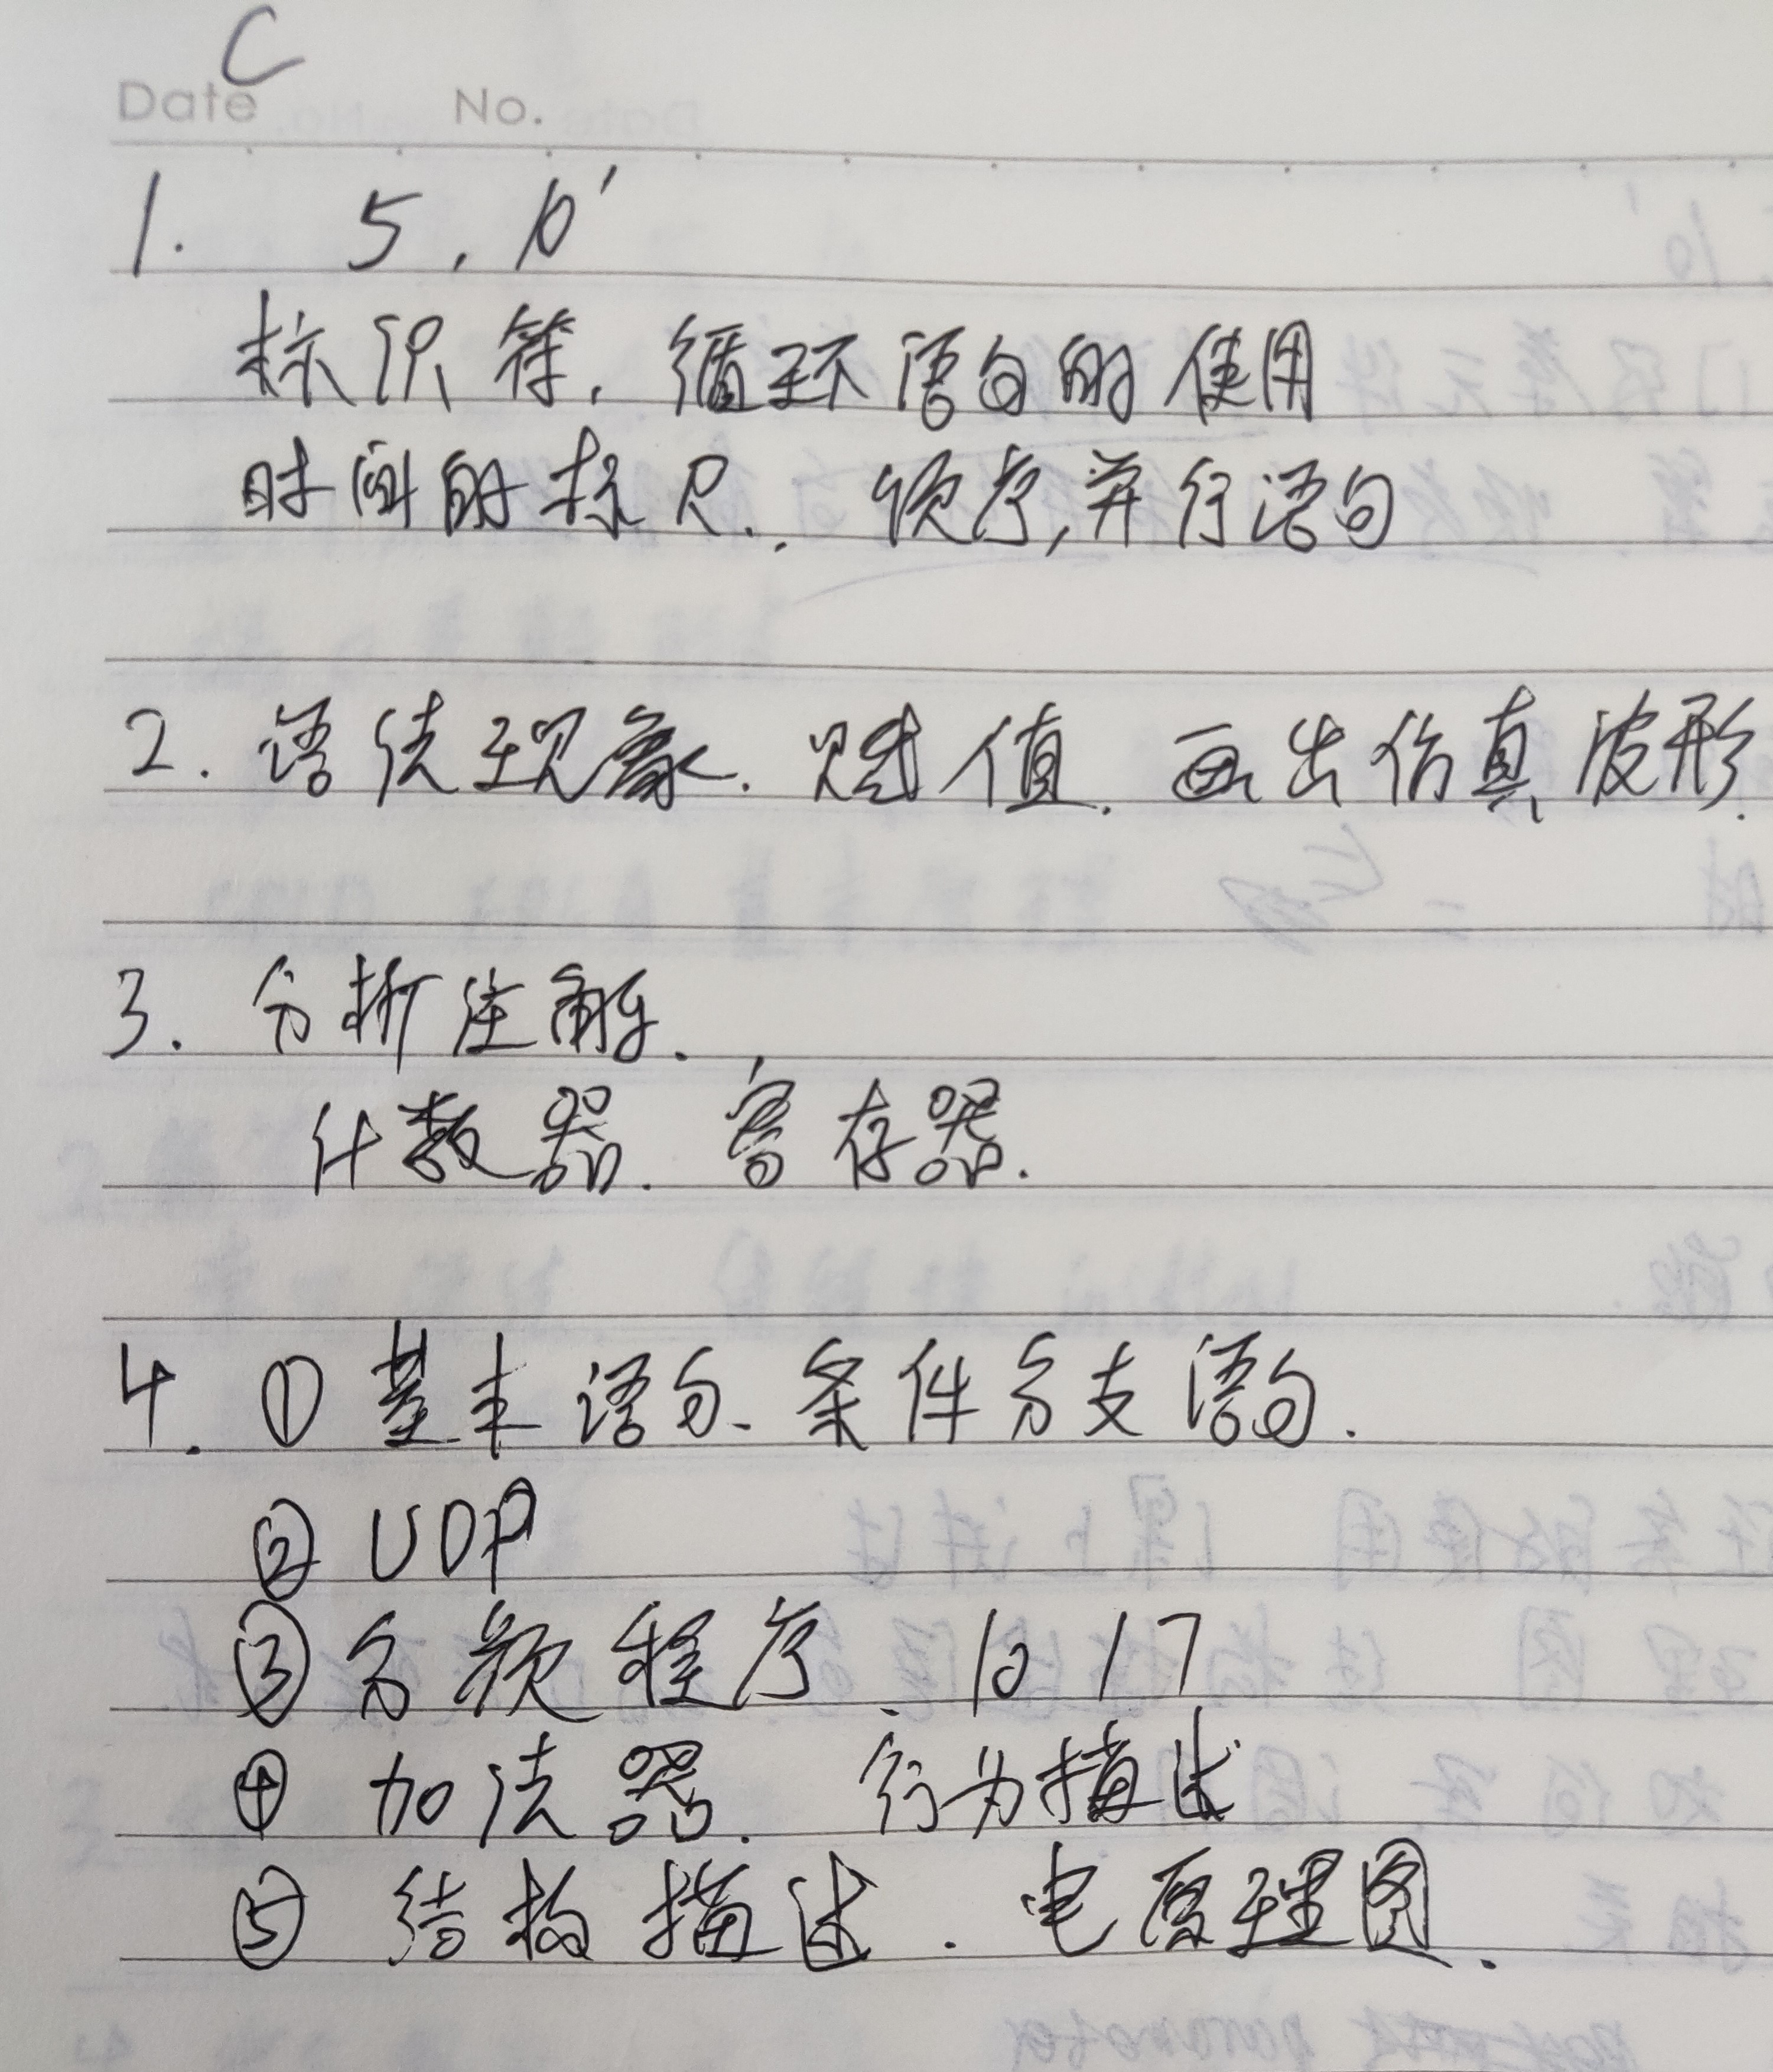 C
Date No.
1. 5, 10'
标识符, 循环语句的使用
时间的标尺. 顺序,并行语句
2. 语法现象. 赋值. 画出仿真波形.
3. 分析注解.
计数器. 寄存器.
4. ① 基本语句、条件分支语句.
② UDP
③ 分频程序、10 17
④ 加法器. 行为描述
⑤ 结构描述. 电原理图.